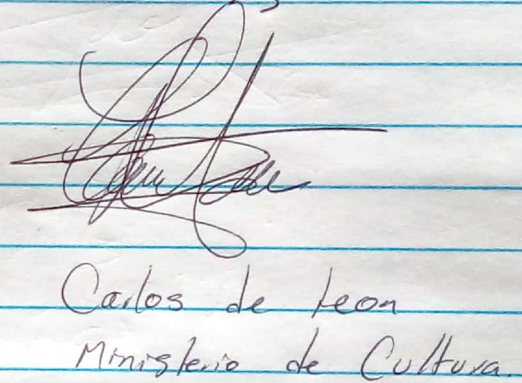 Carlos de Leon
Ministerio de Cultura.